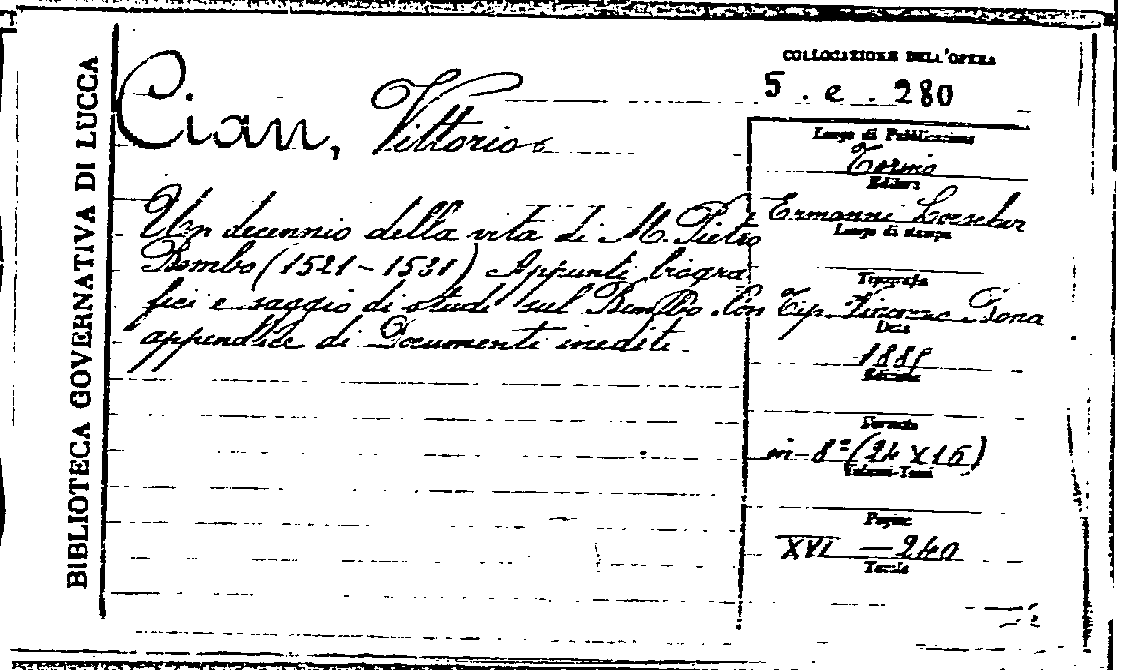 BIBLIOTECA GOVERNATIVA DI LUCCA
Cian, Vittorio
Un decennio della vita di M. Pietro
Bembo (1521-1531) Appunti biogra
fici e saggio di studi sul Bembo. Con
appendice di Documenti inediti.
COLLOCAZIONE DELL'OPERA
5 . e . 280
Luogo di Pubblicazione
Torino
Editore
Ermanno Loescher
Luogo di stampa
Tipografia
Tip. Vincenzo Bona
Data
1885
Edizione
Formato
in-8° (24 X 16)
Volumi-Tomi
Pagine
XVI — 240
Tavole